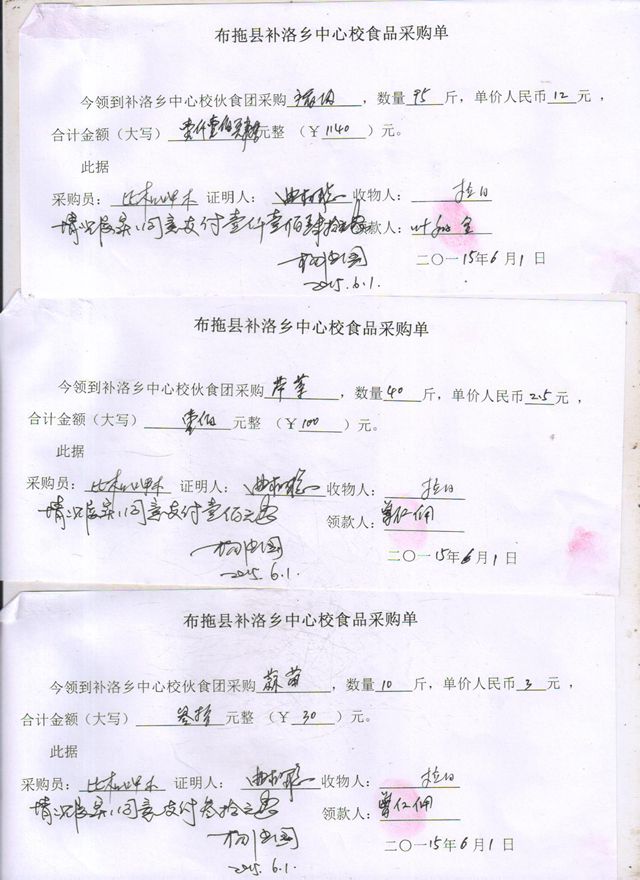 布拖县补洛乡中心校食品采购单
今领到补洛乡中心校伙食团采购，数量 95 斤，单价人民币 12 元，
合计金额（大写）元整（￥1140）元。
此据
采购员： 证明人： 收物人：拉日
情况属实，同意支付壹仟壹佰肆拾元 领款人：
二〇一15年6月1日
2015.6.1.
布拖县补洛乡中心校食品采购单
今领到补洛乡中心校伙食团采购 芹菜，数量 40 斤，单价人民币 2.5 元，
合计金额（大写）壹佰 元整（￥100）元。
此据
采购员： 证明人： 收物人：拉日
情况属实，同意支付壹佰元 领款人：曾仁佣
二〇一15年6月1日
2015.6.1.
布拖县补洛乡中心校食品采购单
今领到补洛乡中心校伙食团采购 蒜苗，数量 10 斤，单价人民币 3 元，
合计金额（大写）叁拾 元整（￥30）元。
此据
采购员： 证明人： 收物人：拉日
情况属实，同意支付叁拾元 领款人：曾仁佣
二〇一15年6月1日
2015.6.1.